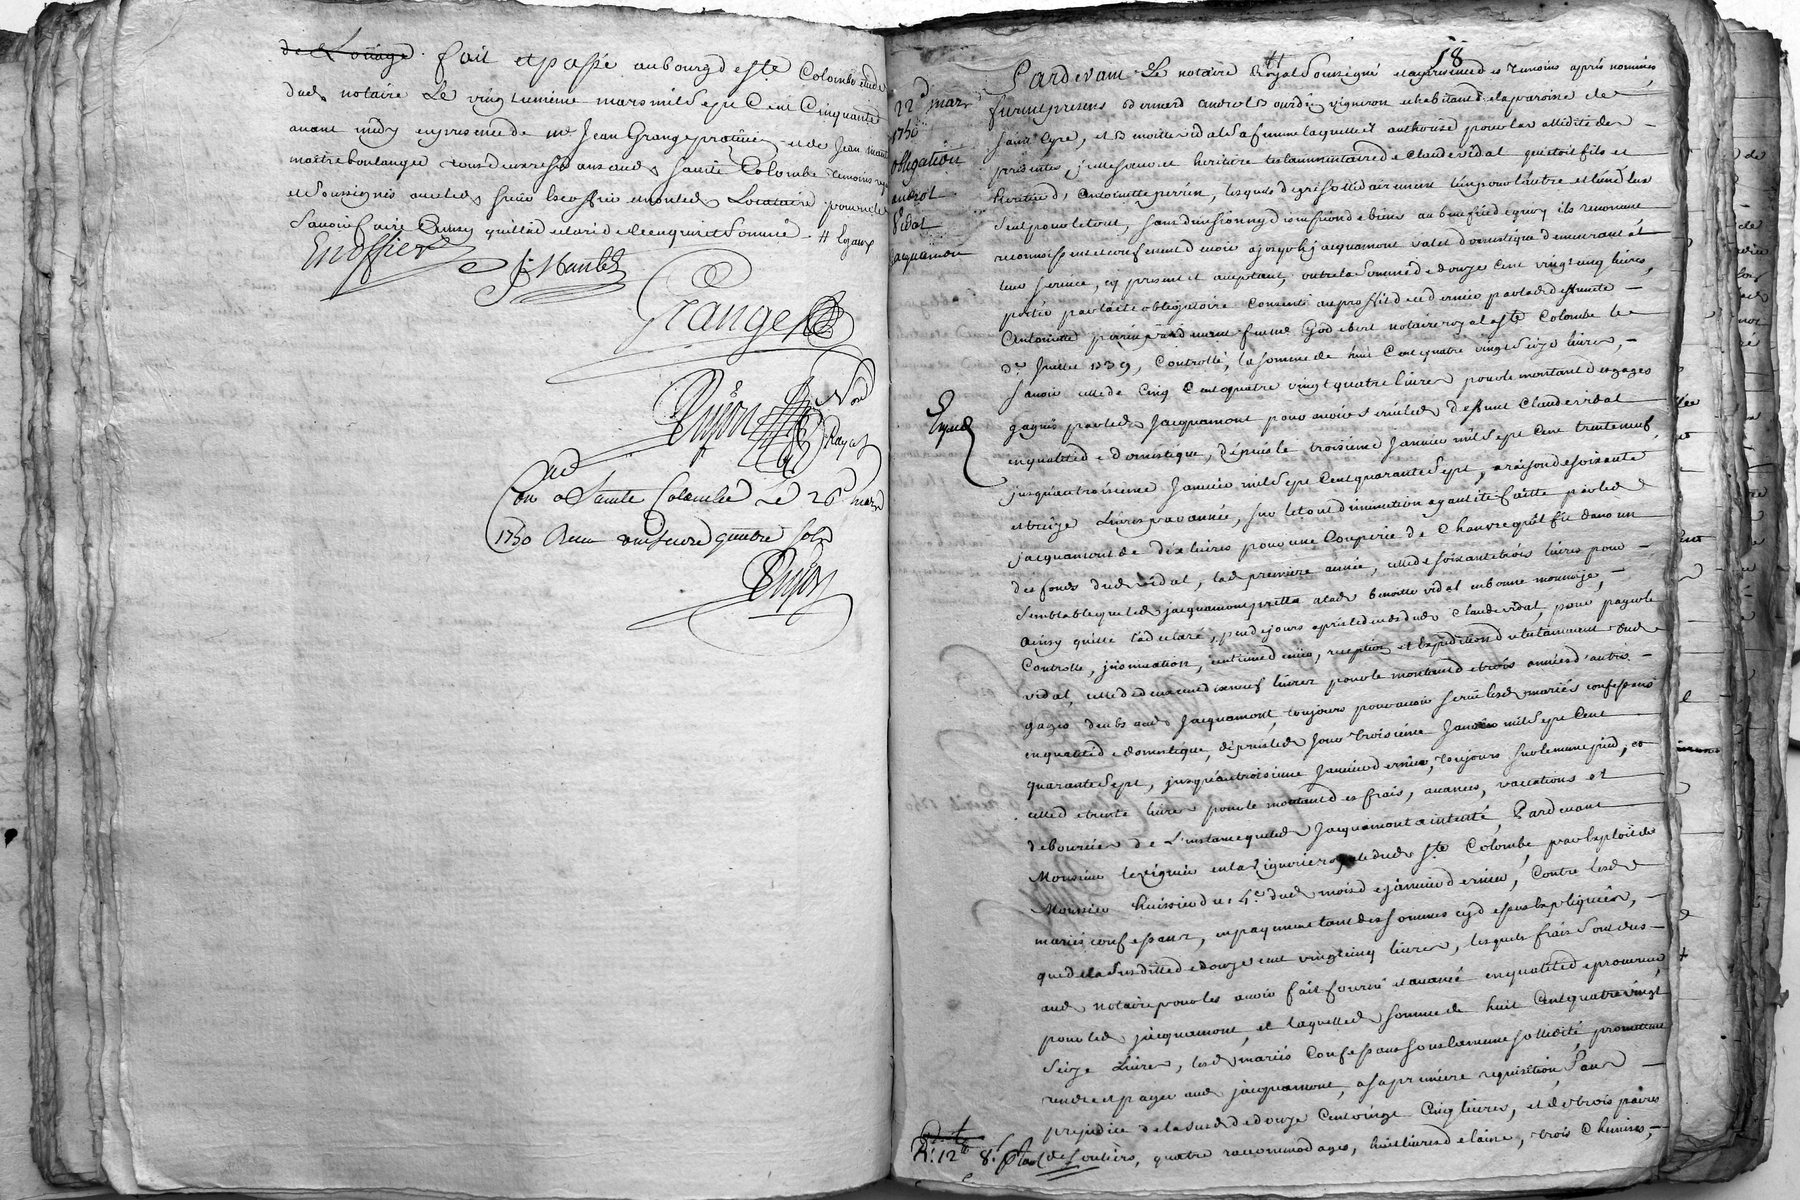 de Loüage. fait et passé au bourg de Ste Colombe etude
dud. notaire Le vingt unieme mars mil Sept Cent Cinquante
avant midy en presence de me Jean Grange praticien et de Jean
maitre boulanger demeurants aud. Sainte Colombe temoins requis
et Soussignés avec led. Sieur et non led. Locataire pour ne le
Savoir faire ainsy qu'il lad. declaré de ce enquis et Sommé #
Grange
Dujon
Con a Sainte Colombe Le 26e mars
1750 Receu quatre sols
Dujon
18
22e mars
1750
obligation
androt
Vidal
Jacquamon
Pardevant Le notaire Royal Soussigné et en presence des temoins aprés nommés,
furent presens Bernard androt Bourdin vigneron et habitant de la paroisse de
Saint Cyre, et Benoitte vidal Sa femme laquelle il authorise pour la vallidité des
presentes, icelle soeur et heritiere testamentaire de Claude vidal qui etoit fils et
heritier d'Antoinette perrin, lesquels de gré sollidairement l'un pour l'autre et l'un d'eux
Seul pour le tout, sans division ny discussion de biens au benefice de quoy ils renoncent
reconnoissent et confessent devoir a joseph jacquamont valet domestique demeurant a
leur service, cy present et acceptant, outre la Somme de douze cent vingt cinq livres,
portée par l'acte obligatoire Consenti au proffit de ce dernier par lad. deffunte
Antoinette perrin pardevant feu me Godebert notaire royal a Ste Colombe le
3e. Juillet 1739, Controllé, la somme de huit Cent quatre vingt Seize livres,
Sçavoir celle de Cinq Cent quatre vingt quatre livres pour le montant des gages
gagnés par led. Jacquamont pour avoir Servi led. deffunt Claude vidal
en qualité de domestique, depuis le troisieme Janvier mil Sept Cent trente neuf,
jusqu'au troisieme Janvier mil Sept Cent quarante Sept, a raison de soixante
et treize Livres par année, sur le tout diminution ayant été faitte par led.
jacquamont de dix livres pour une Couperie de Chanvre qu'il fit dans un
des fonds dud. vidal, lad. premiere année, celle de soixante trois livres pour
Semblable que led. jacquamont pretta a lad. Benoitte vidal en bonne monnoije,
ainsy qu'elle l'a declaré, peu de jours aprés le deces dud. Claude vidal, pour payer le
Controlle, jnsinuation, centieme denier, reception et expedition du testament dud.
vidal, celle de deux cent dixneuf livres pour le montant de trois années d'autres
gages deubs aud. Jacquamont, toujours pour avoir servi lesd. mariés confessants
en qualité de domestique, depuis led. Jour troisieme Janvier mil Sept Cent
quarante Sept, jusqu'au troisieme Janvier dernier, toujours sur le meme pied, et
celle de trente livres pour le montant des frais, avances, vaccations et
debources de L'instance que led. Jacquamont a intenté, Pardevant
Monsieur le viguier en la viguerie royale dud. Ste Colombe, par exploit de
Mounier huissier du 14e. dud. mois de janvier dernier, Contre lesd.
mariés confessant, en payement tant des sommes cy dessus expliquées,
que de la Susditte de douze cent vingt cinq livres, lesquels frais Sont dus
aud. notaire pour les avoir fait fourni et avancé en qualité de procureur
pour led. jacquamont, et laquelle d. somme de huit Cent quatre vingt
Seize Livres, lesd. mariés Confessant sous la meme sollidité, promettent
rendre et payer aud. jacquamont, a sa premiere requisition, Sans
prejudice de la susd. de douze Cent vingt Cinq livres, et de trois paires
de Souliers, quatre raccommodages, huit livres de laine, trois Chemises,
R. 12tt 8s